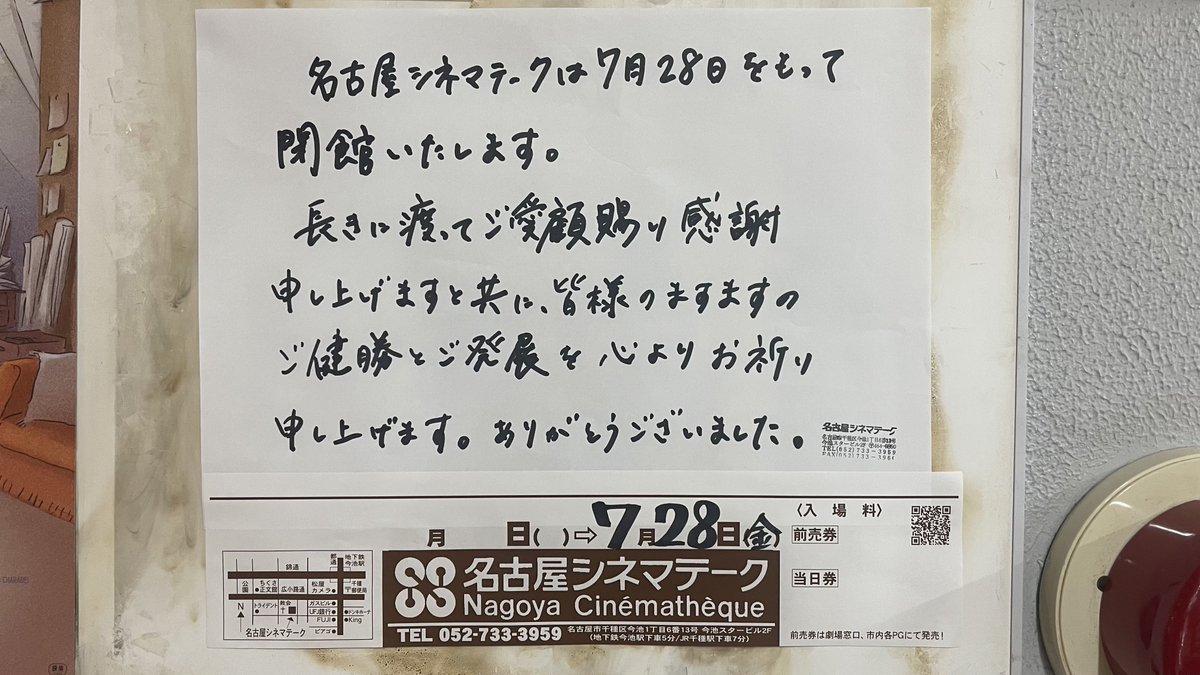 名古屋シネマテークは7月28日をもって
閉館いたします。
長きに渡ってご愛顧賜り感謝
申し上げますと共に、皆様のますますの
ご健勝とご発展を心よりお祈り
申し上げます。ありがとうございました。
名古屋シネマテーク
名古屋市千種区今池1丁目6番13号
今池スタービル2F
TEL(052)733-3959
月 日( )⇨7月28日(金)
〈入 場 料〉
前売券
当日券
前売券は劇場窓口、市内各PGにて発売!
名古屋シネマテーク
Nagoya Cinémathèque
TEL 052-733-3959
名古屋市千種区今池1丁目6番13号 今池スタービル2F
(地下鉄今池駅下車5分/JR千種駅下車7分)
地下鉄
今池駅
錦通
公園
ちくさ
正文館
広小路通
松屋
カメラ
千種
郵便局
トライデント
教会
ガスビル
UFJ銀行
FUJI
ドンキホーテ
King
N
名古屋シネマテーク
ピアゴ